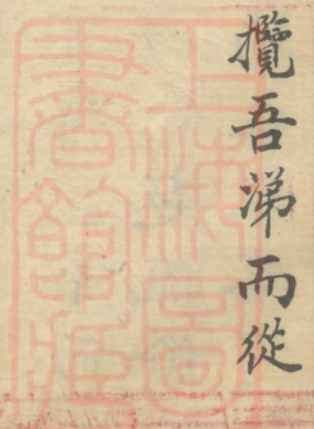 攬吾涕而從
上海圖
書館藏